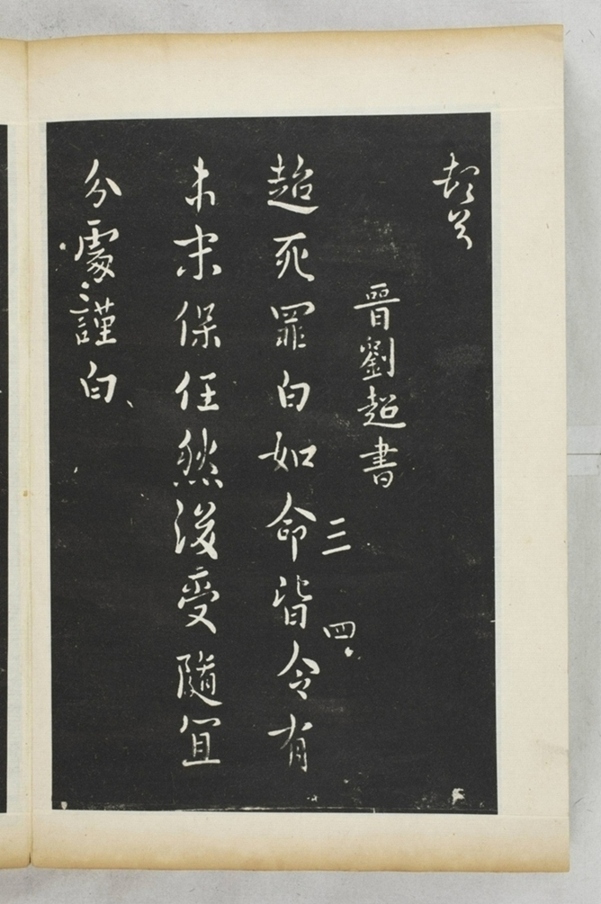 晉劉超書
超死罪白如命皆令有
三
四
未宋保任然後受隨宜
分處謹白